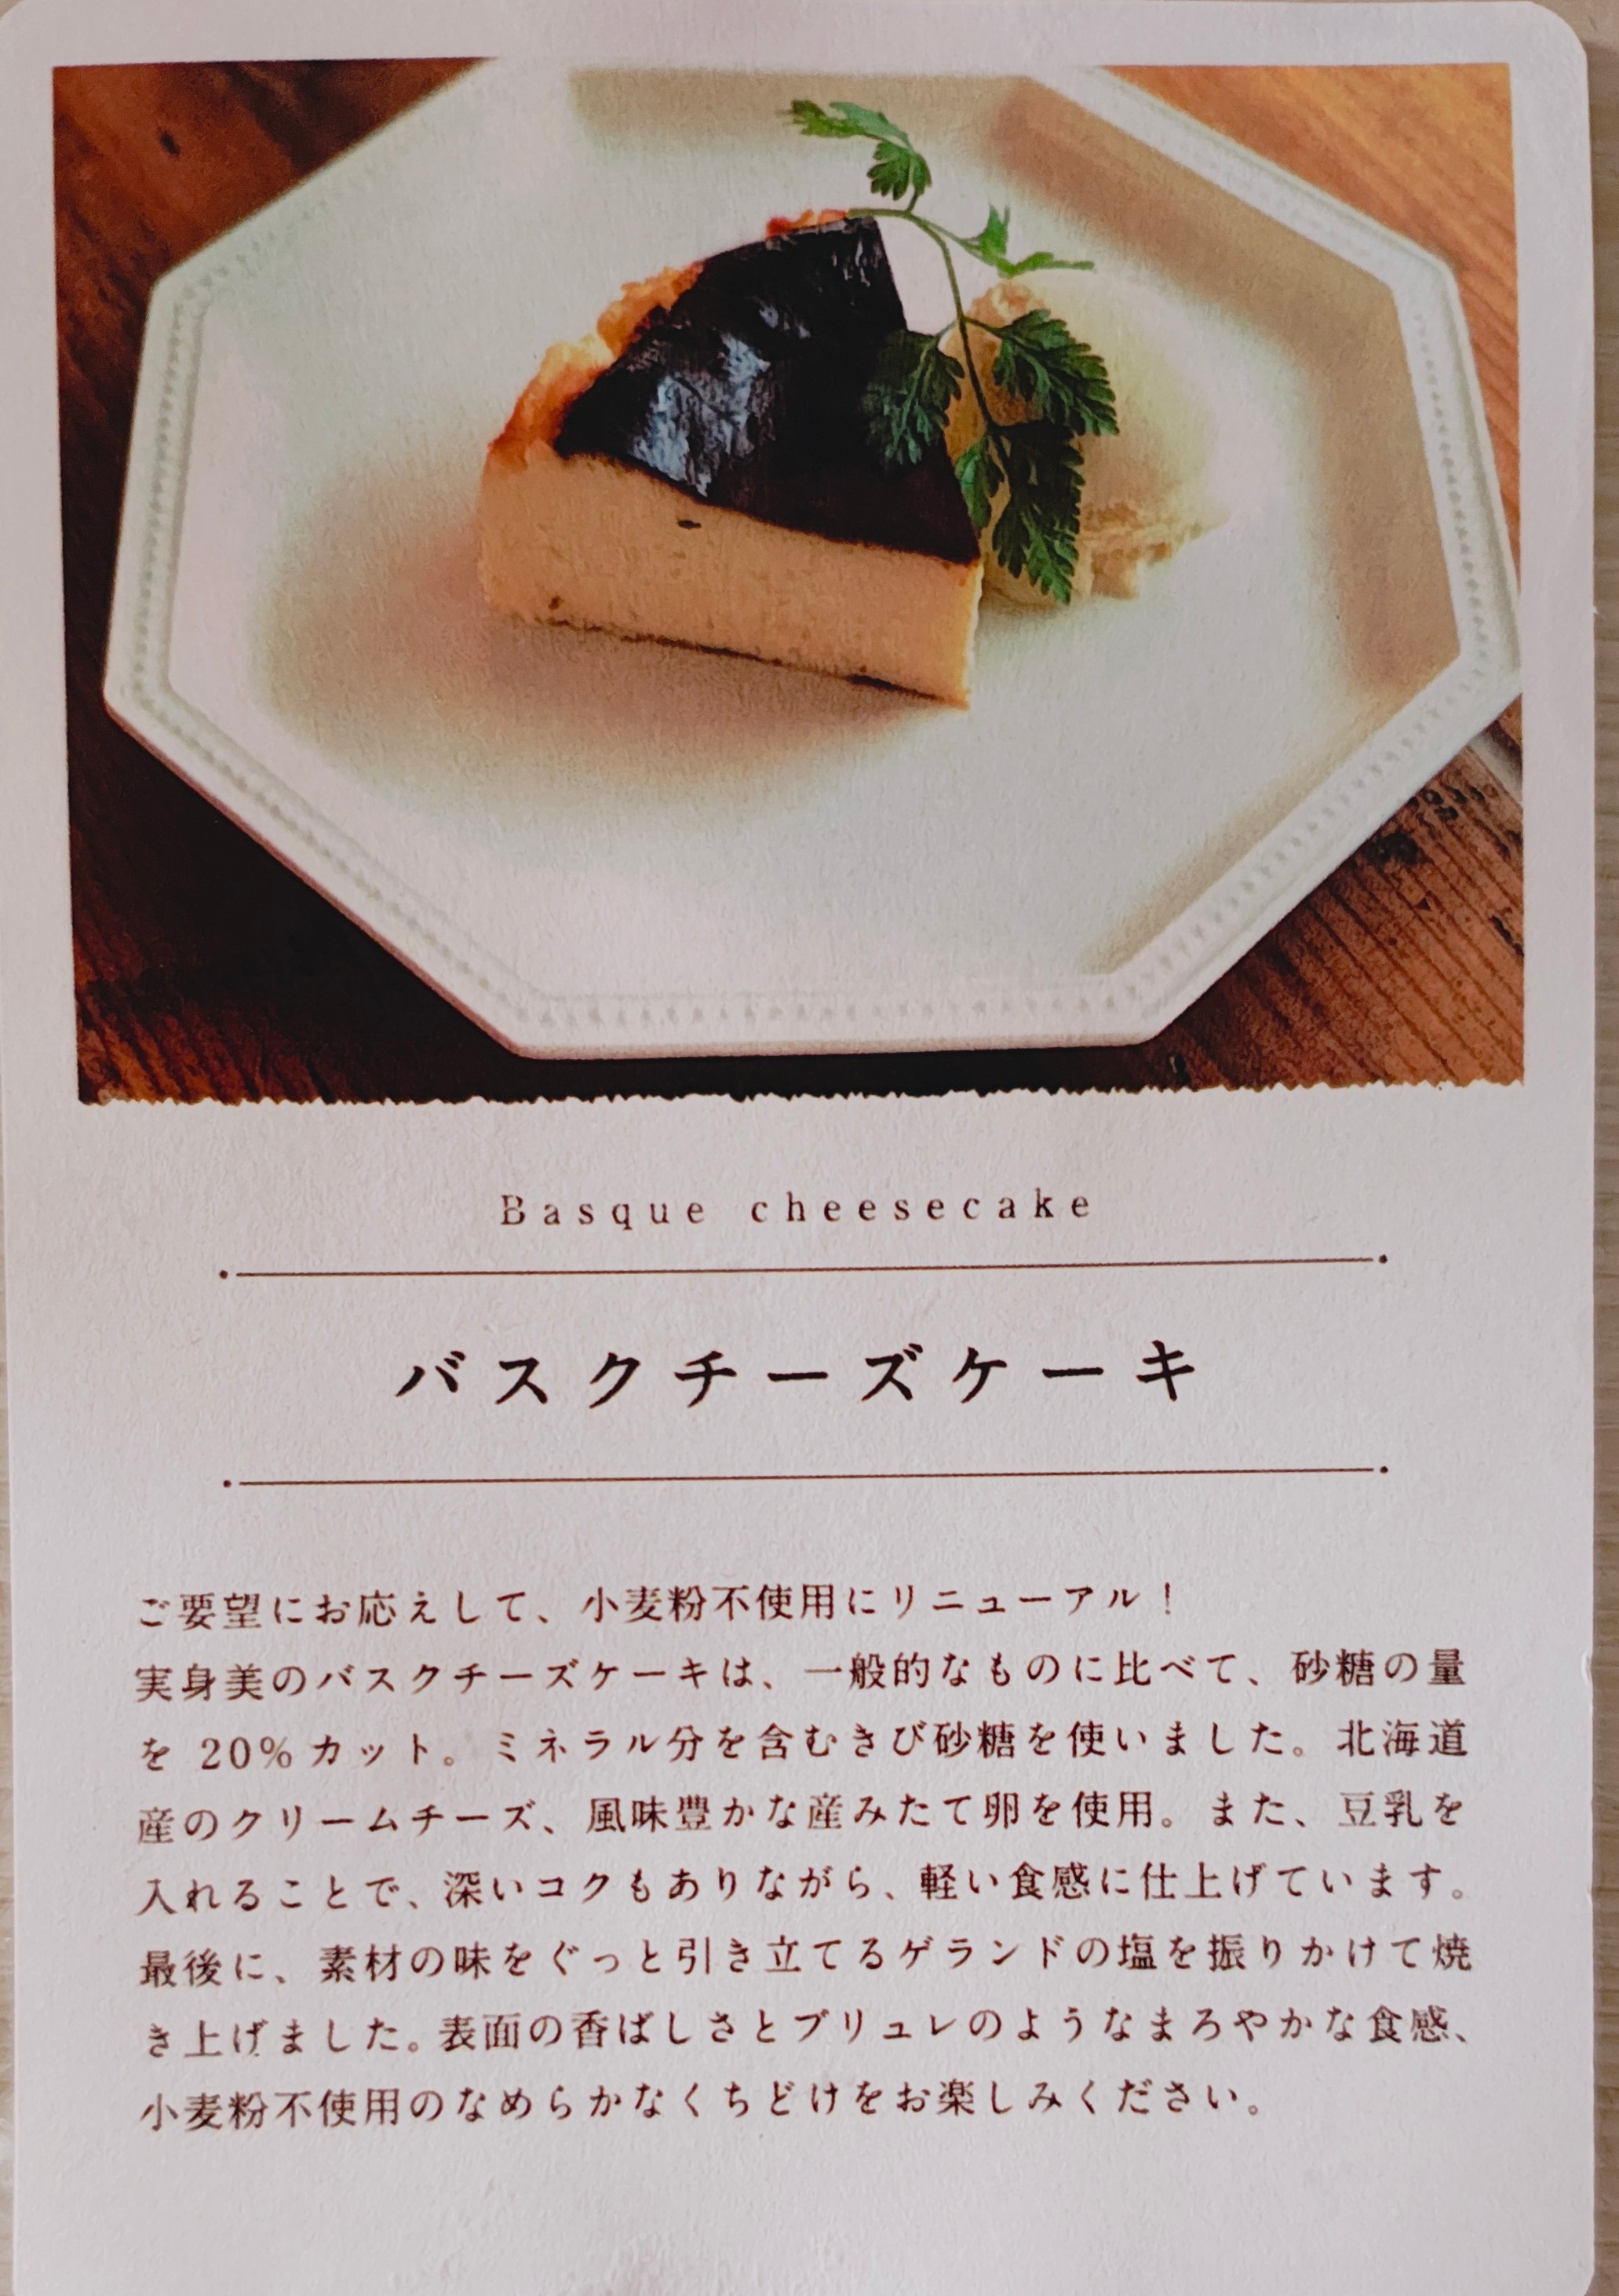 Basque cheesecake
バスクチーズケーキ
ご要望にお応えして、小麦粉不使用にリニューアル！
実身美のバスクチーズケーキは、一般的なものに比べて、砂糖の量
を 20%カット。ミネラル分を含むきび砂糖を使いました。北海道
産のクリームチーズ、風味豊かな産みたて卵を使用。また、豆乳を
入れることで、深いコクもありながら、軽い食感に仕上げています。
最後に、素材の味をぐっと引き立てるゲランドの塩を振りかけて焼
き上げました。表面の香ばしさとブリュレのようなまろやかな食感、
小麦粉不使用のなめらかなくちどけをお楽しみください。